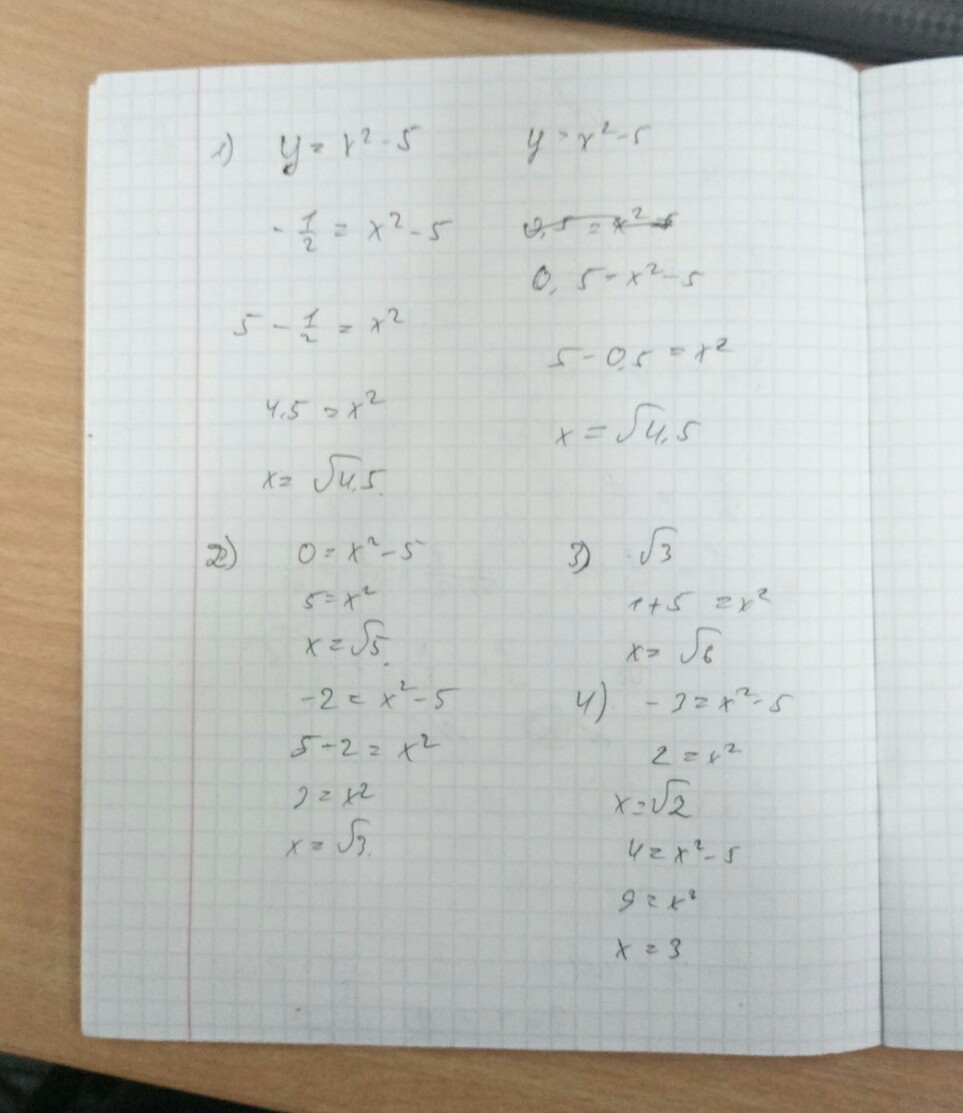 1) y = x² - 5
- 1/2 = x² - 5
5 - 1/2 = x²
4,5 = x²
x = √4,5.
y = x² - 5
0,5 = x² - 5
0,5 = x² - 5
5 - 0,5 = x²
x = √4,5
2) 0 = x² - 5
5 = x²
x = √5.
-2 = x² - 5
5 - 2 = x²
3 = x²
x = √3.
3) √3
1 + 5 = x²
x = √6
4) - 3 = x² - 5
2 = x²
x = √2
4 = x² - 5
9 = x²
x = 3